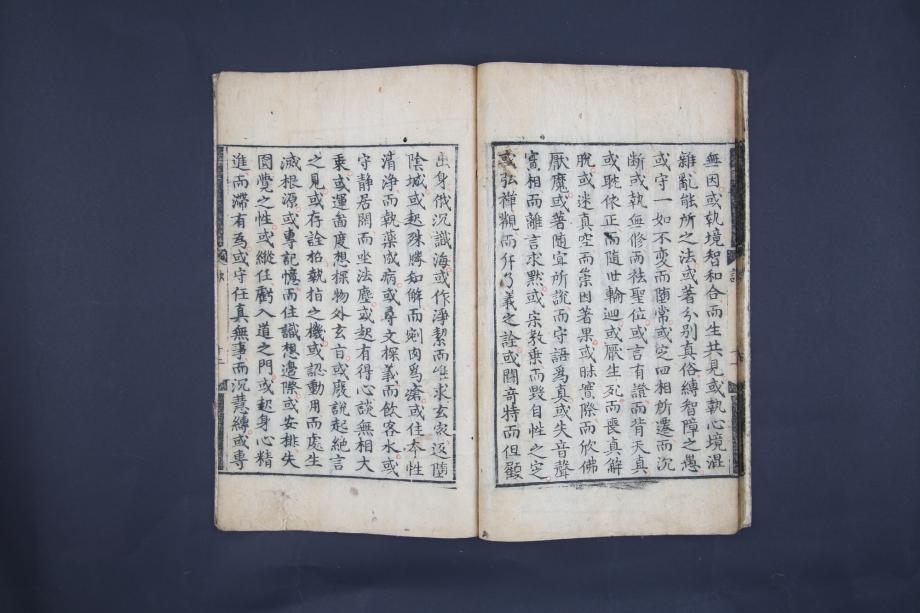 無因或執境智和合而生共見或執心境混
雜亂能所之法或著分別真俗縛智障之愚
或守一如不变而墮常或定四相所遷而沉
断或執無修而祛聖位或言有證而背天真
或耽依正而隨世輪迴或厭生死而喪真解
脫或迷真空而崇因著果或昧實際而欣佛
厭魔或著随宜所說而守語爲真或失音聲
實相而離言求默或宗教乗而毀自性之定
或弘禪觀而斥了義之詮或闘竒特而但顧
出身俄沉識海或作淨絜而唯求玄密返墮
陰城或起殊勝知解而剜肉爲瘡或住本性
清淨而執藥成病或尋文採義而飲客水或
守静居閑而坐法塵或起有得心談無相大
乗或運啚度想探物外玄旨或廢說起絶言
之見或存詮招執指之機或認動用而處生
滅根源或專記憶而住識想邊際或安排失
圓覺之性或縱任虧入道之門或起身心精
進而滯有為或守任真無事而沉慧縛或專